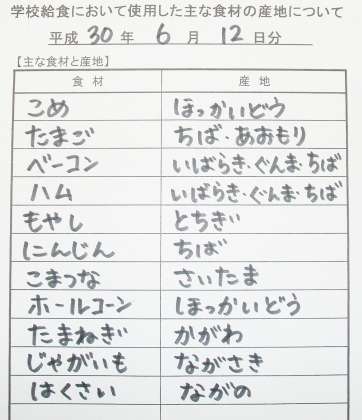 学校給食において使用した主な食材の産地について
平成 30 年 6 月 12 日分
【主な食材と産地】
食材 産地
こめ ほっかいどう
たまご ちば・あおもり
ベーコン いばらき・ぐんま・ちば
ハム いばらき・ぐんま・ちば
もやし とちぎ
にんじん ちば
こまつな さいたま
ホールコーン ほっかいどう
たまねぎ かがわ
じゃがいも ながさき
はくさい ながの